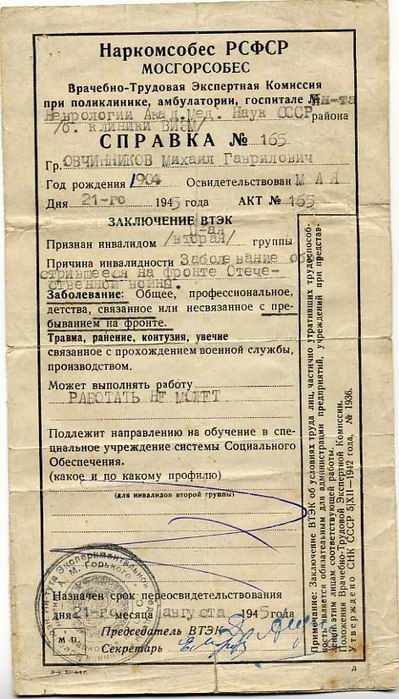 Наркомсобес РСФСР
МОСГОРСОБЕС
Врачебно-Трудовая Экспертная Комиссия
при поликлинике, амбулатории, госпитале № Ин-та
Неврологии Акад.Мед. Наук СССР района
/б. клиники ВИЭМ/
СПРАВКА № 165
Гр. ОВЧИННИКОВ Михаил Гаврилович
Год рождения 1904 Освидетельствован МАЯ
Дня 21-го 1945 года АКТ № 165
ЗАКЛЮЧЕНИЕ ВТЭК
П-ая
Признан инвалидом /вторая/ группы
Причина инвалидности Заболевание обо
стрившееся на фронте Отече-
ственной войны.
Заболевание: Общее, профессиональное,
детства, связанное или несвязанное с пре-
быванием на фронте.
Травма, ранение, контузия, увечие
связанное с прохождением военной службы,
производством.
Может выполнять работу
РАБОТАТЬ НЕ МОЖЕТ
Подлежит направлению на обучение в спе-
циальное учреждение системы Социального
Обеспечения.
(какое и по какому профилю)
(для инвалидов второй группы)
Назначен срок переосвидетельствования
дня 21-го месяца августа 1945 года
М П. Председатель ВТЭК
Секретарь
Примечание: Заключение ВТЭК об условиях труда лиц, частично утративших трудоспособ-
ность является обязательным для администрации предприятий, учреждений при представ-
лении этим лицам соответствующей работы.
Положения Врачебно-Трудовой Экспертной Комиссии.
Утверждено СНК СССР 5/XII—1942 года, № 1936.
А. М. Горького
Д